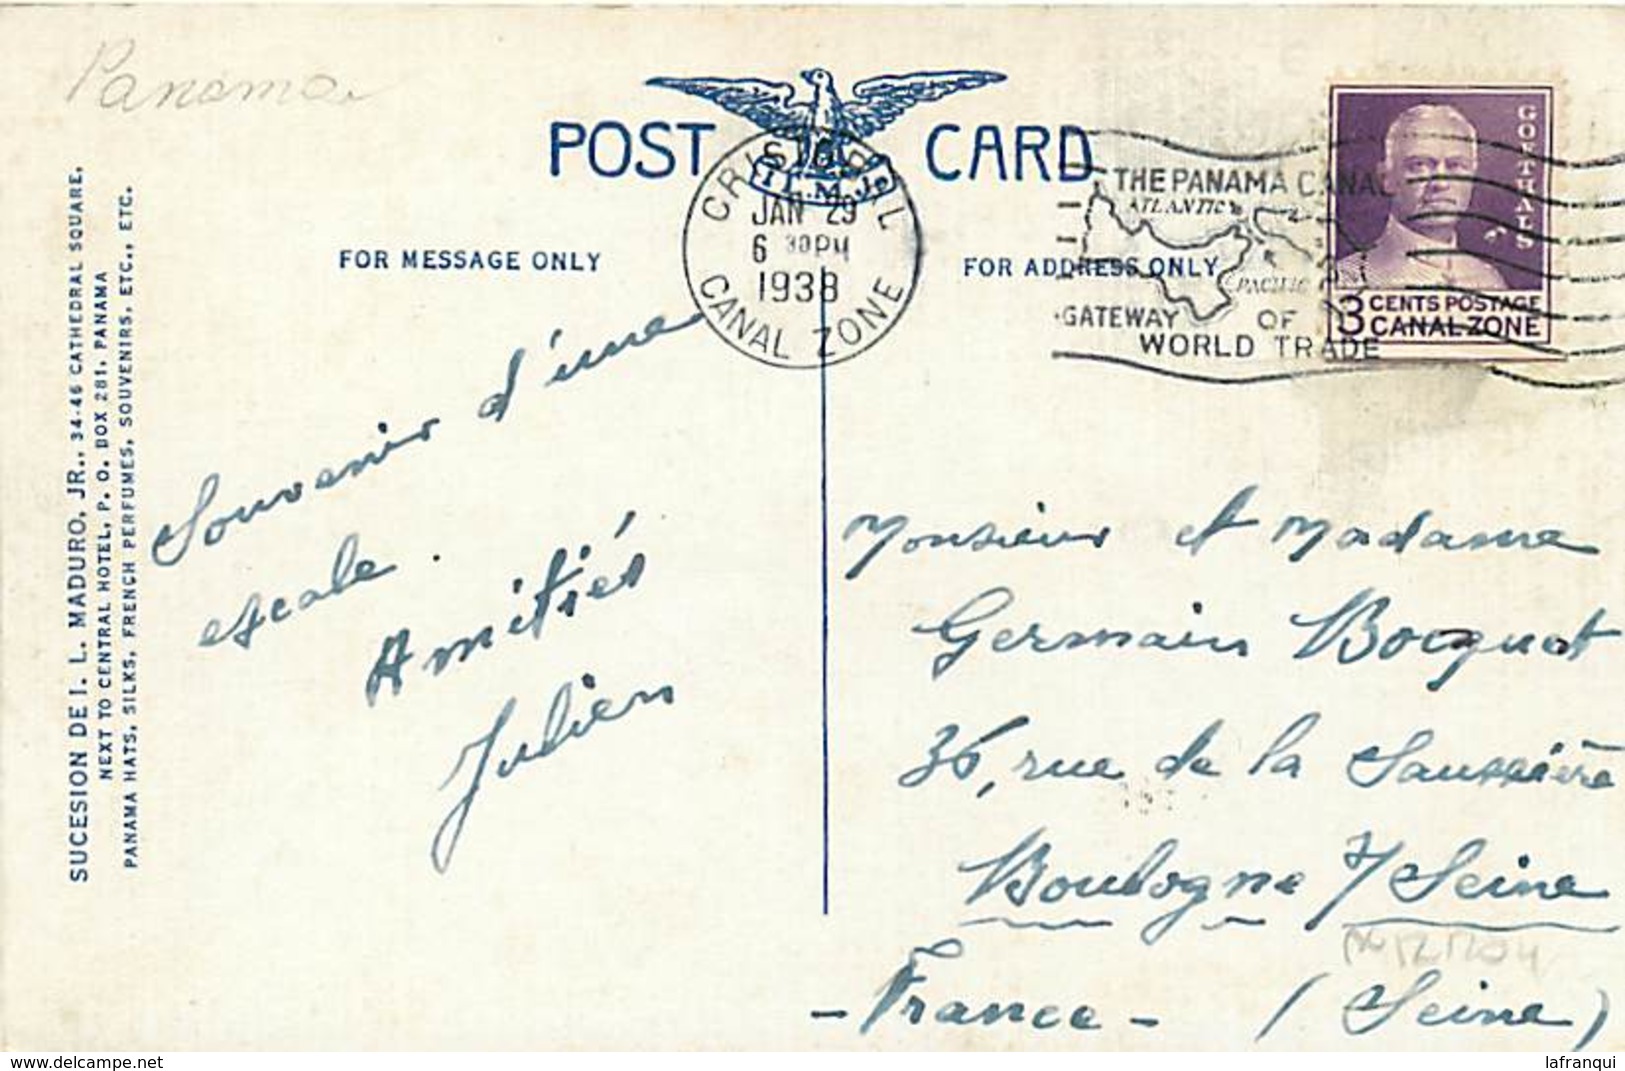 Panama
POST CARD
I.L.M.Jr
FOR MESSAGE ONLY
FOR ADDRESS ONLY
CRISTOBAL
JAN 29
6 30PM
1938
CANAL ZONE
THE PANAMA CANAL
ATLANTIC
PACIFIC
GATEWAY OF
WORLD TRADE
GOETHALS
3 CENTS POSTAGE
CANAL ZONE
SUCESION DE I. L. MADURO, JR., 34-46 CATHEDRAL SQUARE,
NEXT TO CENTRAL HOTEL, P. O. BOX 281, PANAMA
PANAMA HATS, SILKS, FRENCH PERFUMES, SOUVENIRS, ETC., ETC.
Souvenir d'une
escale.
Amitiés
Julien
Monsieur et Madame
Germain Bocquet
36, rue de la Saussière
Boulogne s/ Seine
- France - (Seine)
lafranqui